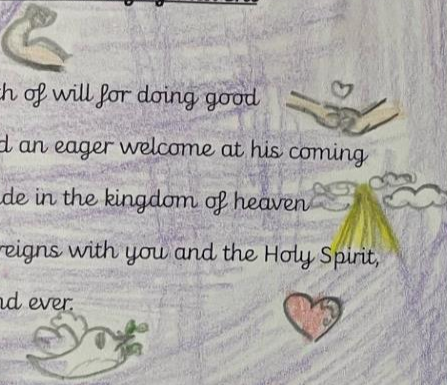 h of will for doing good
d an eager welcome at his coming
de in the kingdom of heaven
reigns with you and the Holy Spirit,
nd ever.